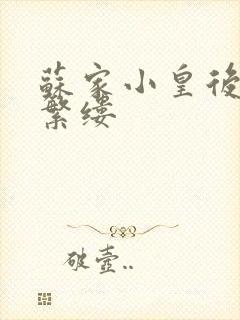 蘇家小皇後
繁縷
破壺..